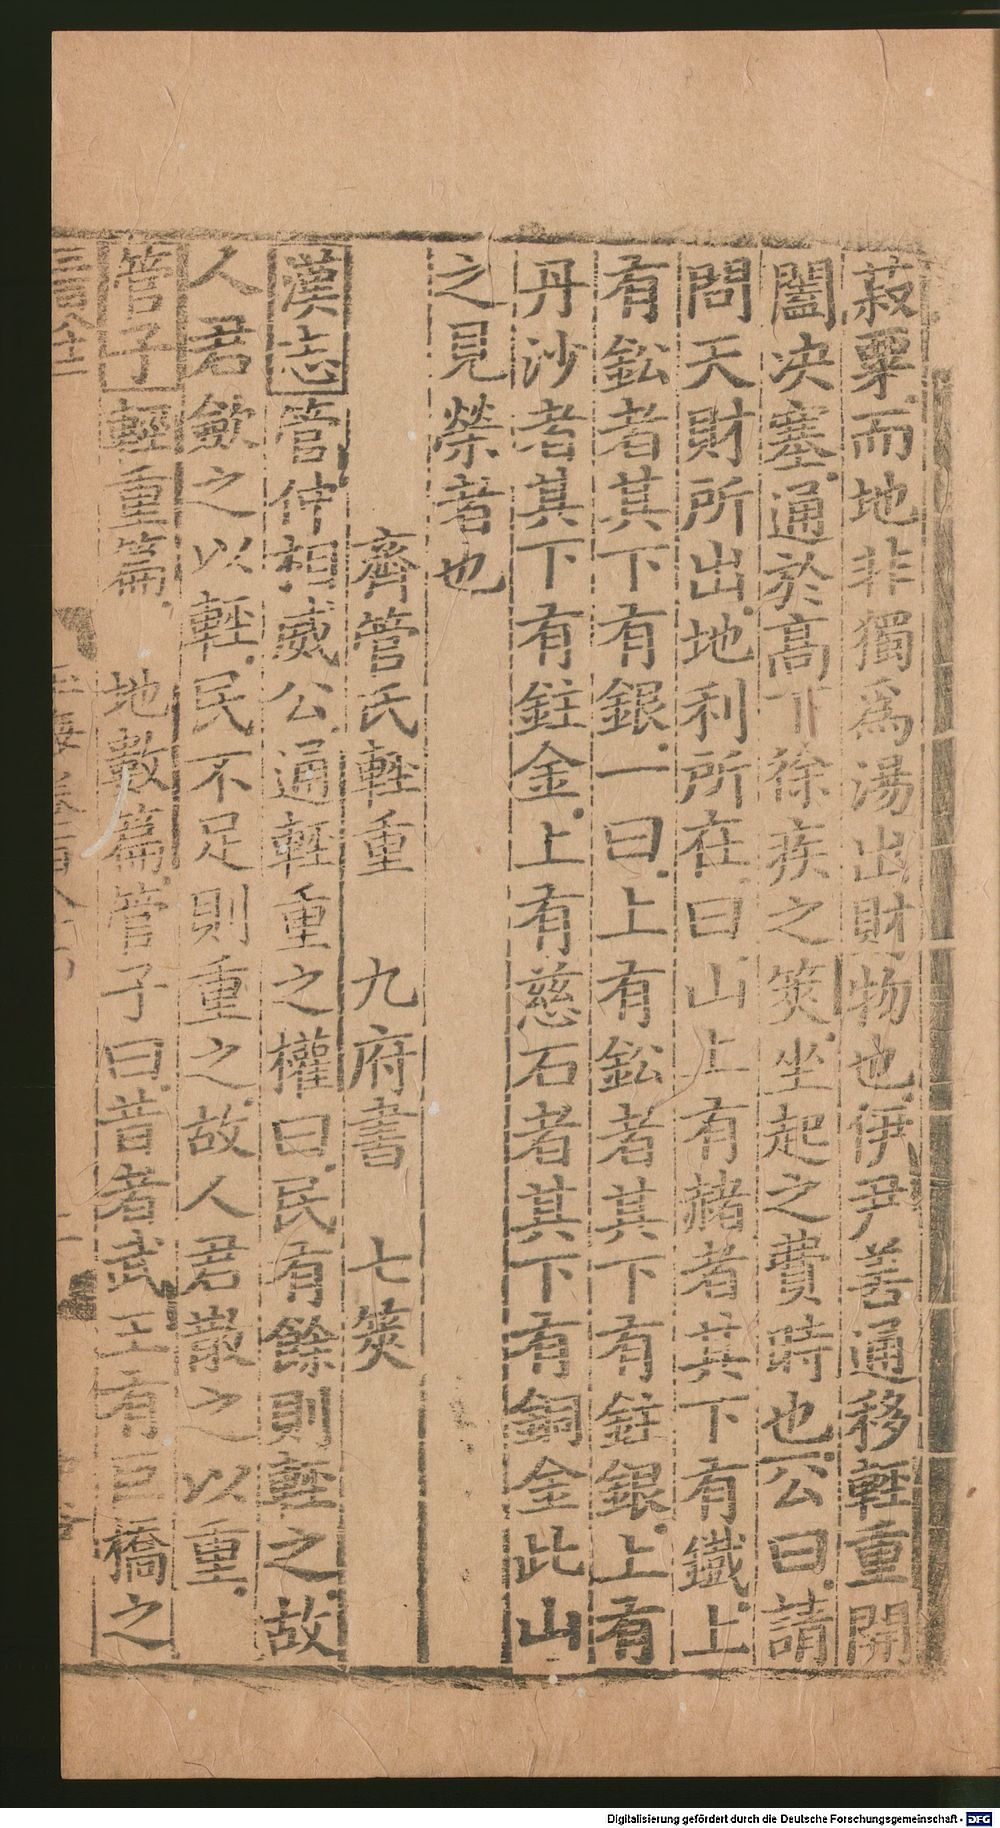 菽粟而地非獨爲湯出財物也伊尹善通移輊重開
闔决塞通於高下徐疾之筴坐起之費時也公曰請
問天財所出地利所在曰山上有赭者其下有鐵上
有鈆者其下有銀一曰上有鈆者其下有鉒銀上有
丹沙者其下有鉒金上有慈石者其下有銅金此山
之見榮者也
齊管氏輊重 九府書 七筴
漢志管仲相威公通輊重之權曰民有餘則輊之故
人君斂之以輊民不足則重之故人君散之以重
管子輕重篇 地數篇管子曰昔者武王有巨橋之
Digitalisierung gefördert durch die Deutsche Forschungsgemeinschaft - DFG